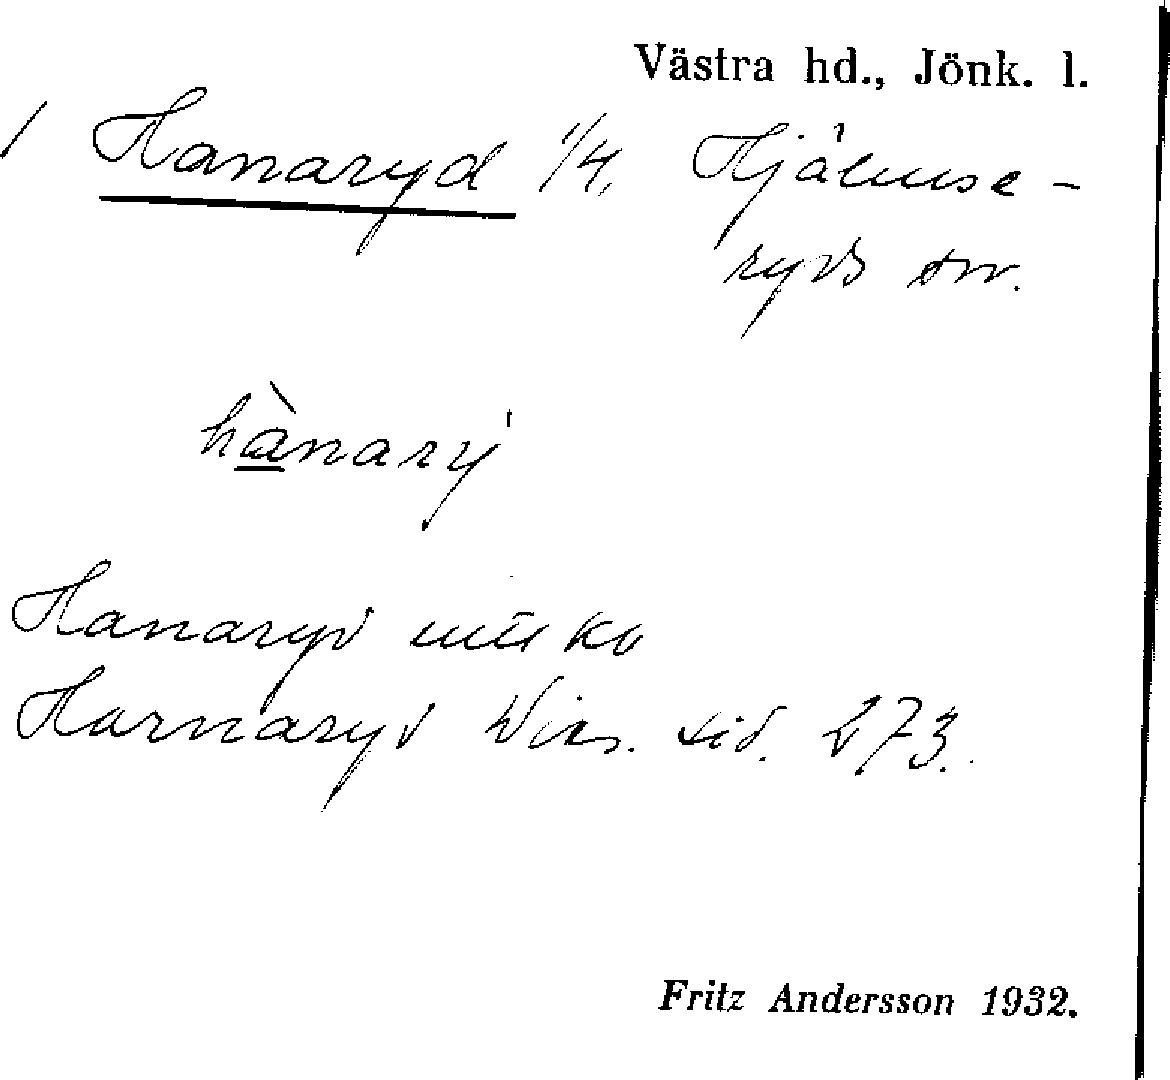 Västra hd., Jönk. l.
/ Hanaryd 1/4, Hjälmse-
ryds sn.
hànarý
Hanaryd
Harnaryd Wirs. sid. 273.
Fritz Andersson 1932.